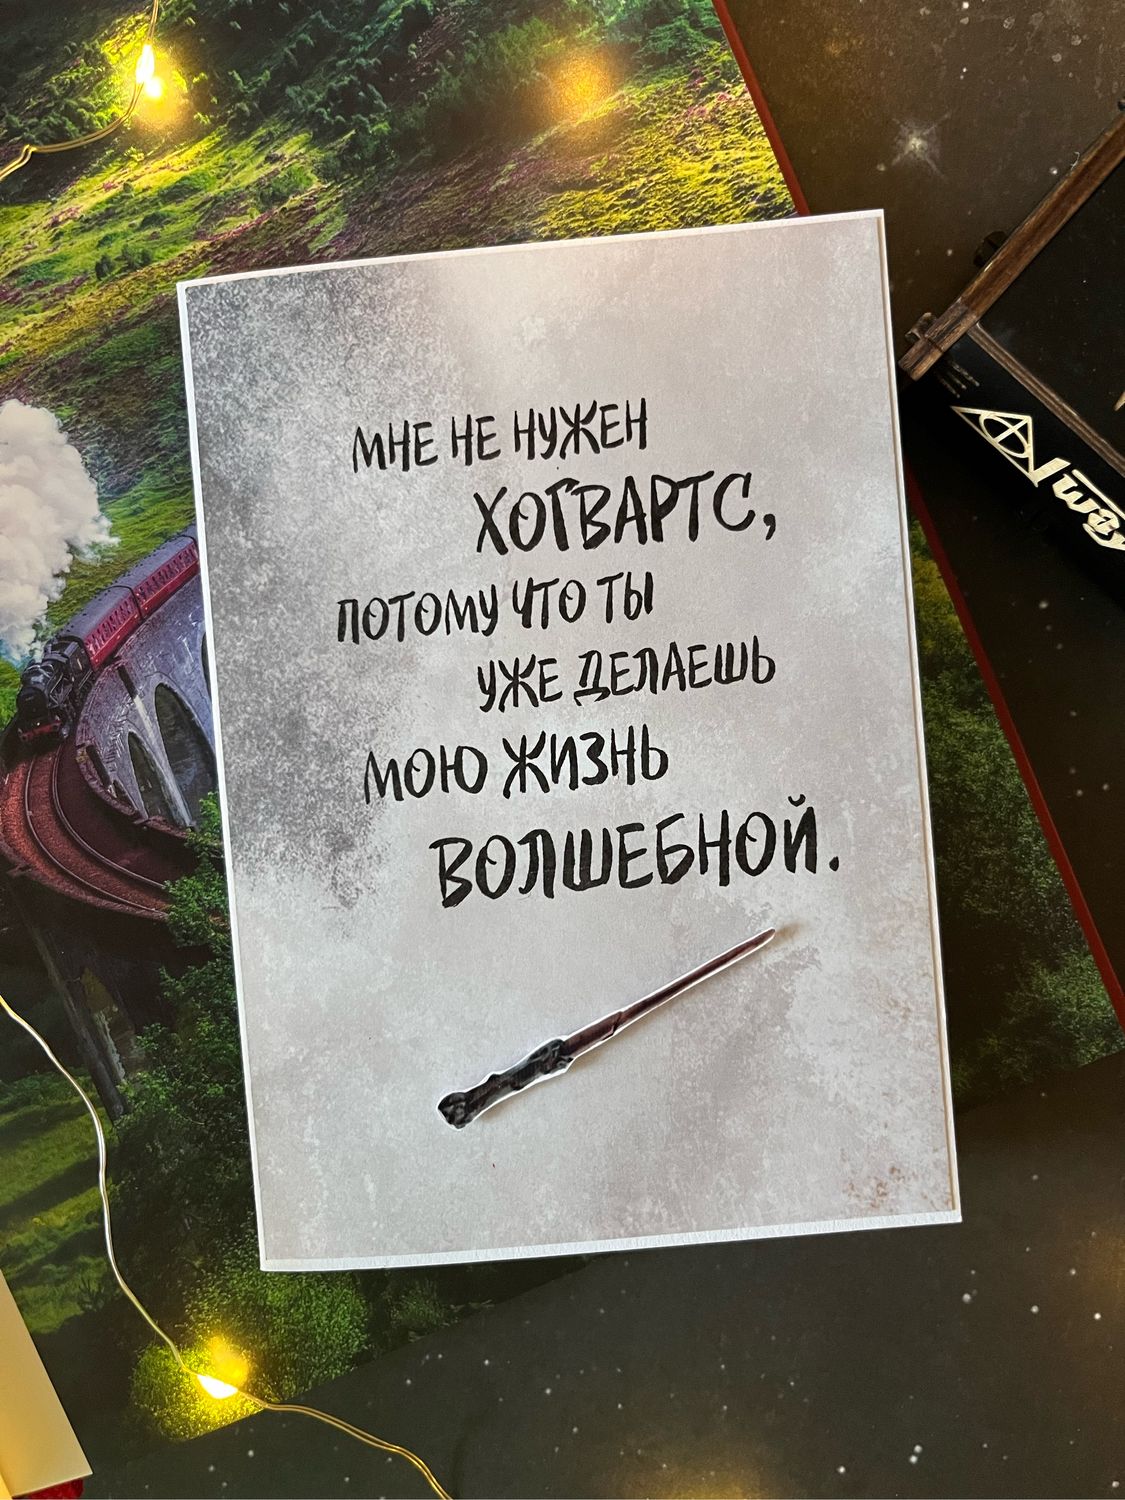 МНЕ НЕ НУЖЕН
ХОГВАРТС,
ПОТОМУ ЧТО ТЫ
УЖЕ ДЕЛАЕШЬ
МОЮ ЖИЗНЬ
ВОЛШЕБНОЙ.